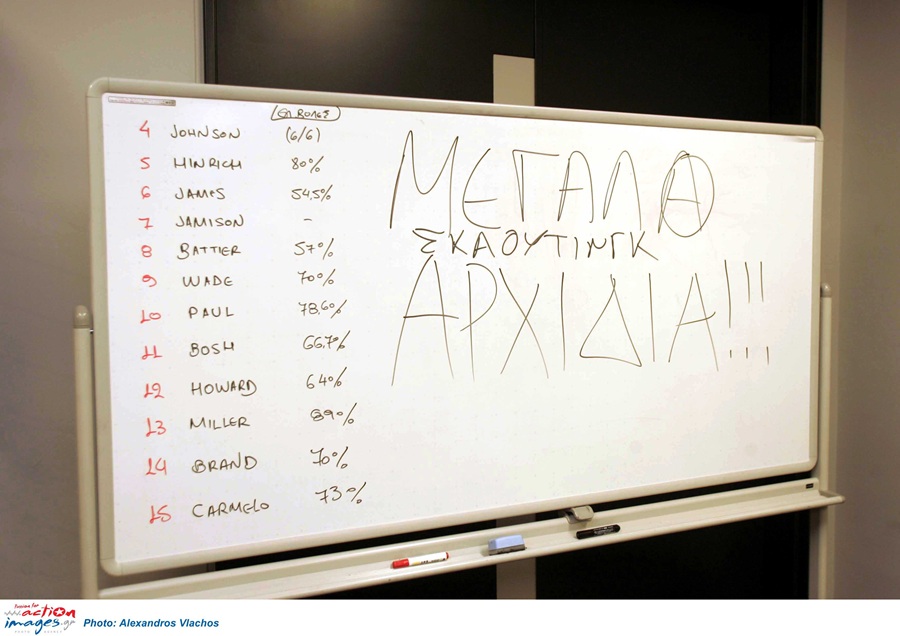 ΕΛ ΒΟΛΕΣ
4 JOHNSON (6/6)
5 HINRICH 80%
6 JAMES 54,5%
7 JAMISON -
8 BATTIER 57%
9 WADE 70%
10 PAUL 78,6%
11 BOSH 66,7%
12 HOWARD 64%
13 MILLER 89%
14 BRAND 70%
15 CARMELO 73%
ΜΕΓΑΛΑ
ΣΚΑΟΥΤΙΝΓΚ
ΑΡΧΙΔΙΑ!!!
action
images.gr
Photo: Alexandros Vlachos